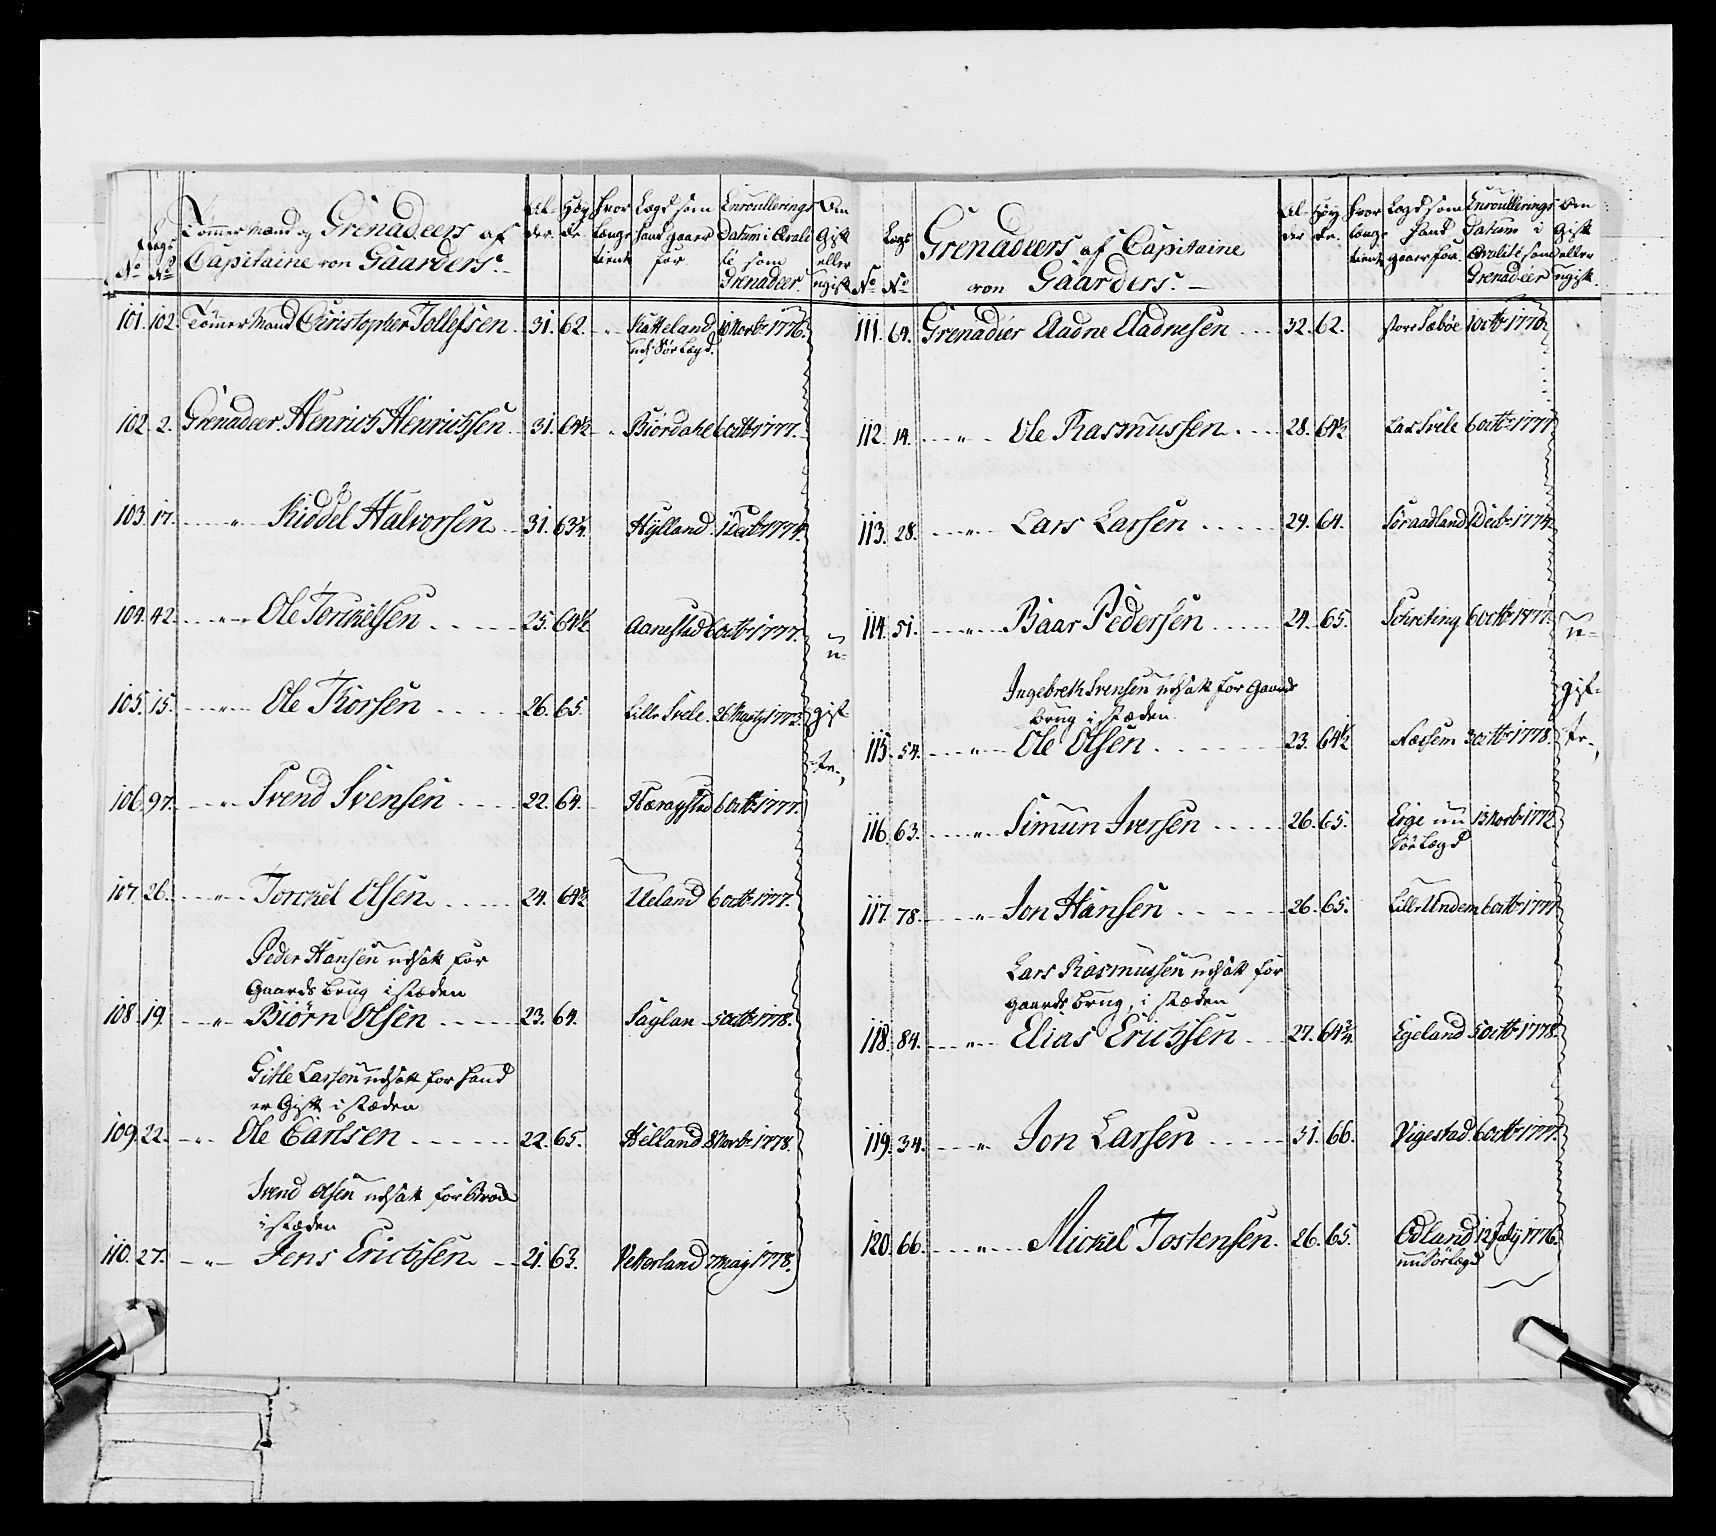 No
Lægs No
Tømmer Mand og Grenadeers af
Capitaine von Gaarders.
Al-
der.
Høy
de.
hvor
længe
tient
Lægd som
hand gaaer
for
Enroullerings
Datum i Qvali
té som
Grenadeer.
Om
Gift
eller
ugift
101. 102. Tømmer Mand Christopher Tollefsen. 31. 62. Katteland 10 Novbr 1776.
ud Sör Lægd.
102. 2. Grenadeer Henrich Henrichsen 31. 64½ Biördahl 6 octbr 1777.
103. 17. " Kiddel Halvorsen 31. 63¼. Hylland 1 Decbr 1774.
104. 42. " Ole Torkielsen 25. 64½ Aanestad 6 octbr 1777.
105. 15. " Ole Thorsen 26. 65. Lille Svele. 26 Marty 1773.
u-
gift
te-,
106. 97. " Svend Svensen 22. 64. 6 Octbr 1777.
107. 26. " Torckel Olsen 24. 64½ Ueland 6 octbr 1777.
Peder Hansen udsatt for
Gaards brug i stæden
108. 19. " Biörn Olsen 23. 64. Saglan 5 Octbr 1778.
Gitle Larsen udsatt for hand
er Gift i stæden
109. 22. " Ole Carlsen 22. 65. Helland 8 Novbr 1778.
Svend Olsen udsatt for
i stæden
110. 27. " Jens Erichsen 21. 63. Vetterland 7 May 1778.
No
Lægs
No
Grenadeers af Capitaine
von Gaarders.
Al-
der
Høy
de.
hvor
længe
tient
Lægd som
hand
gaaer for.
Enroullerings
Datum i
Qvalité som
Grenadeer
Om
Gift
eller
ugift.
111. 64. Grenadeer Aadne Aadnesen 32. 62. Store Sæböe 1 octbr 1770.
112. 14. " Ole Rasmussen 28. 64½ Svele 6 octbr 1777
113. 28. " Lars Larsen 29. 64. Söraadland 1 Decbr 1774.
114. 51. " Baar Pedersen 24. 65. Schreting 6 Octbr 1777.
u-
gif-
te-,
Ingebreth Svensen udsatt for Gaards
brug i stæden
115. 54. " Ole Olsen 23. 64½ Næssem 3 octbr 1778.
116. 63. " Simun Iversen 26. 65. Eige nu 13 Novbr 1772
Sör Lægd
117. 78. " Jon Hansen 26. 65. Lille Undem 6 octbr 1777
Lars Rasmussen udsatt for
gaards brug, i stæden
118. 84. " Elias Erichsen 27. 64¾. Egeland 5 octbr 1778.
119. 34. " Jon Larsen 31. 66. Vigestad. 6 Octbr 1777.
120. 66. " Mickel Tostensen. 26. 65. Odland 12 July 1776.
nu Sör Lægd